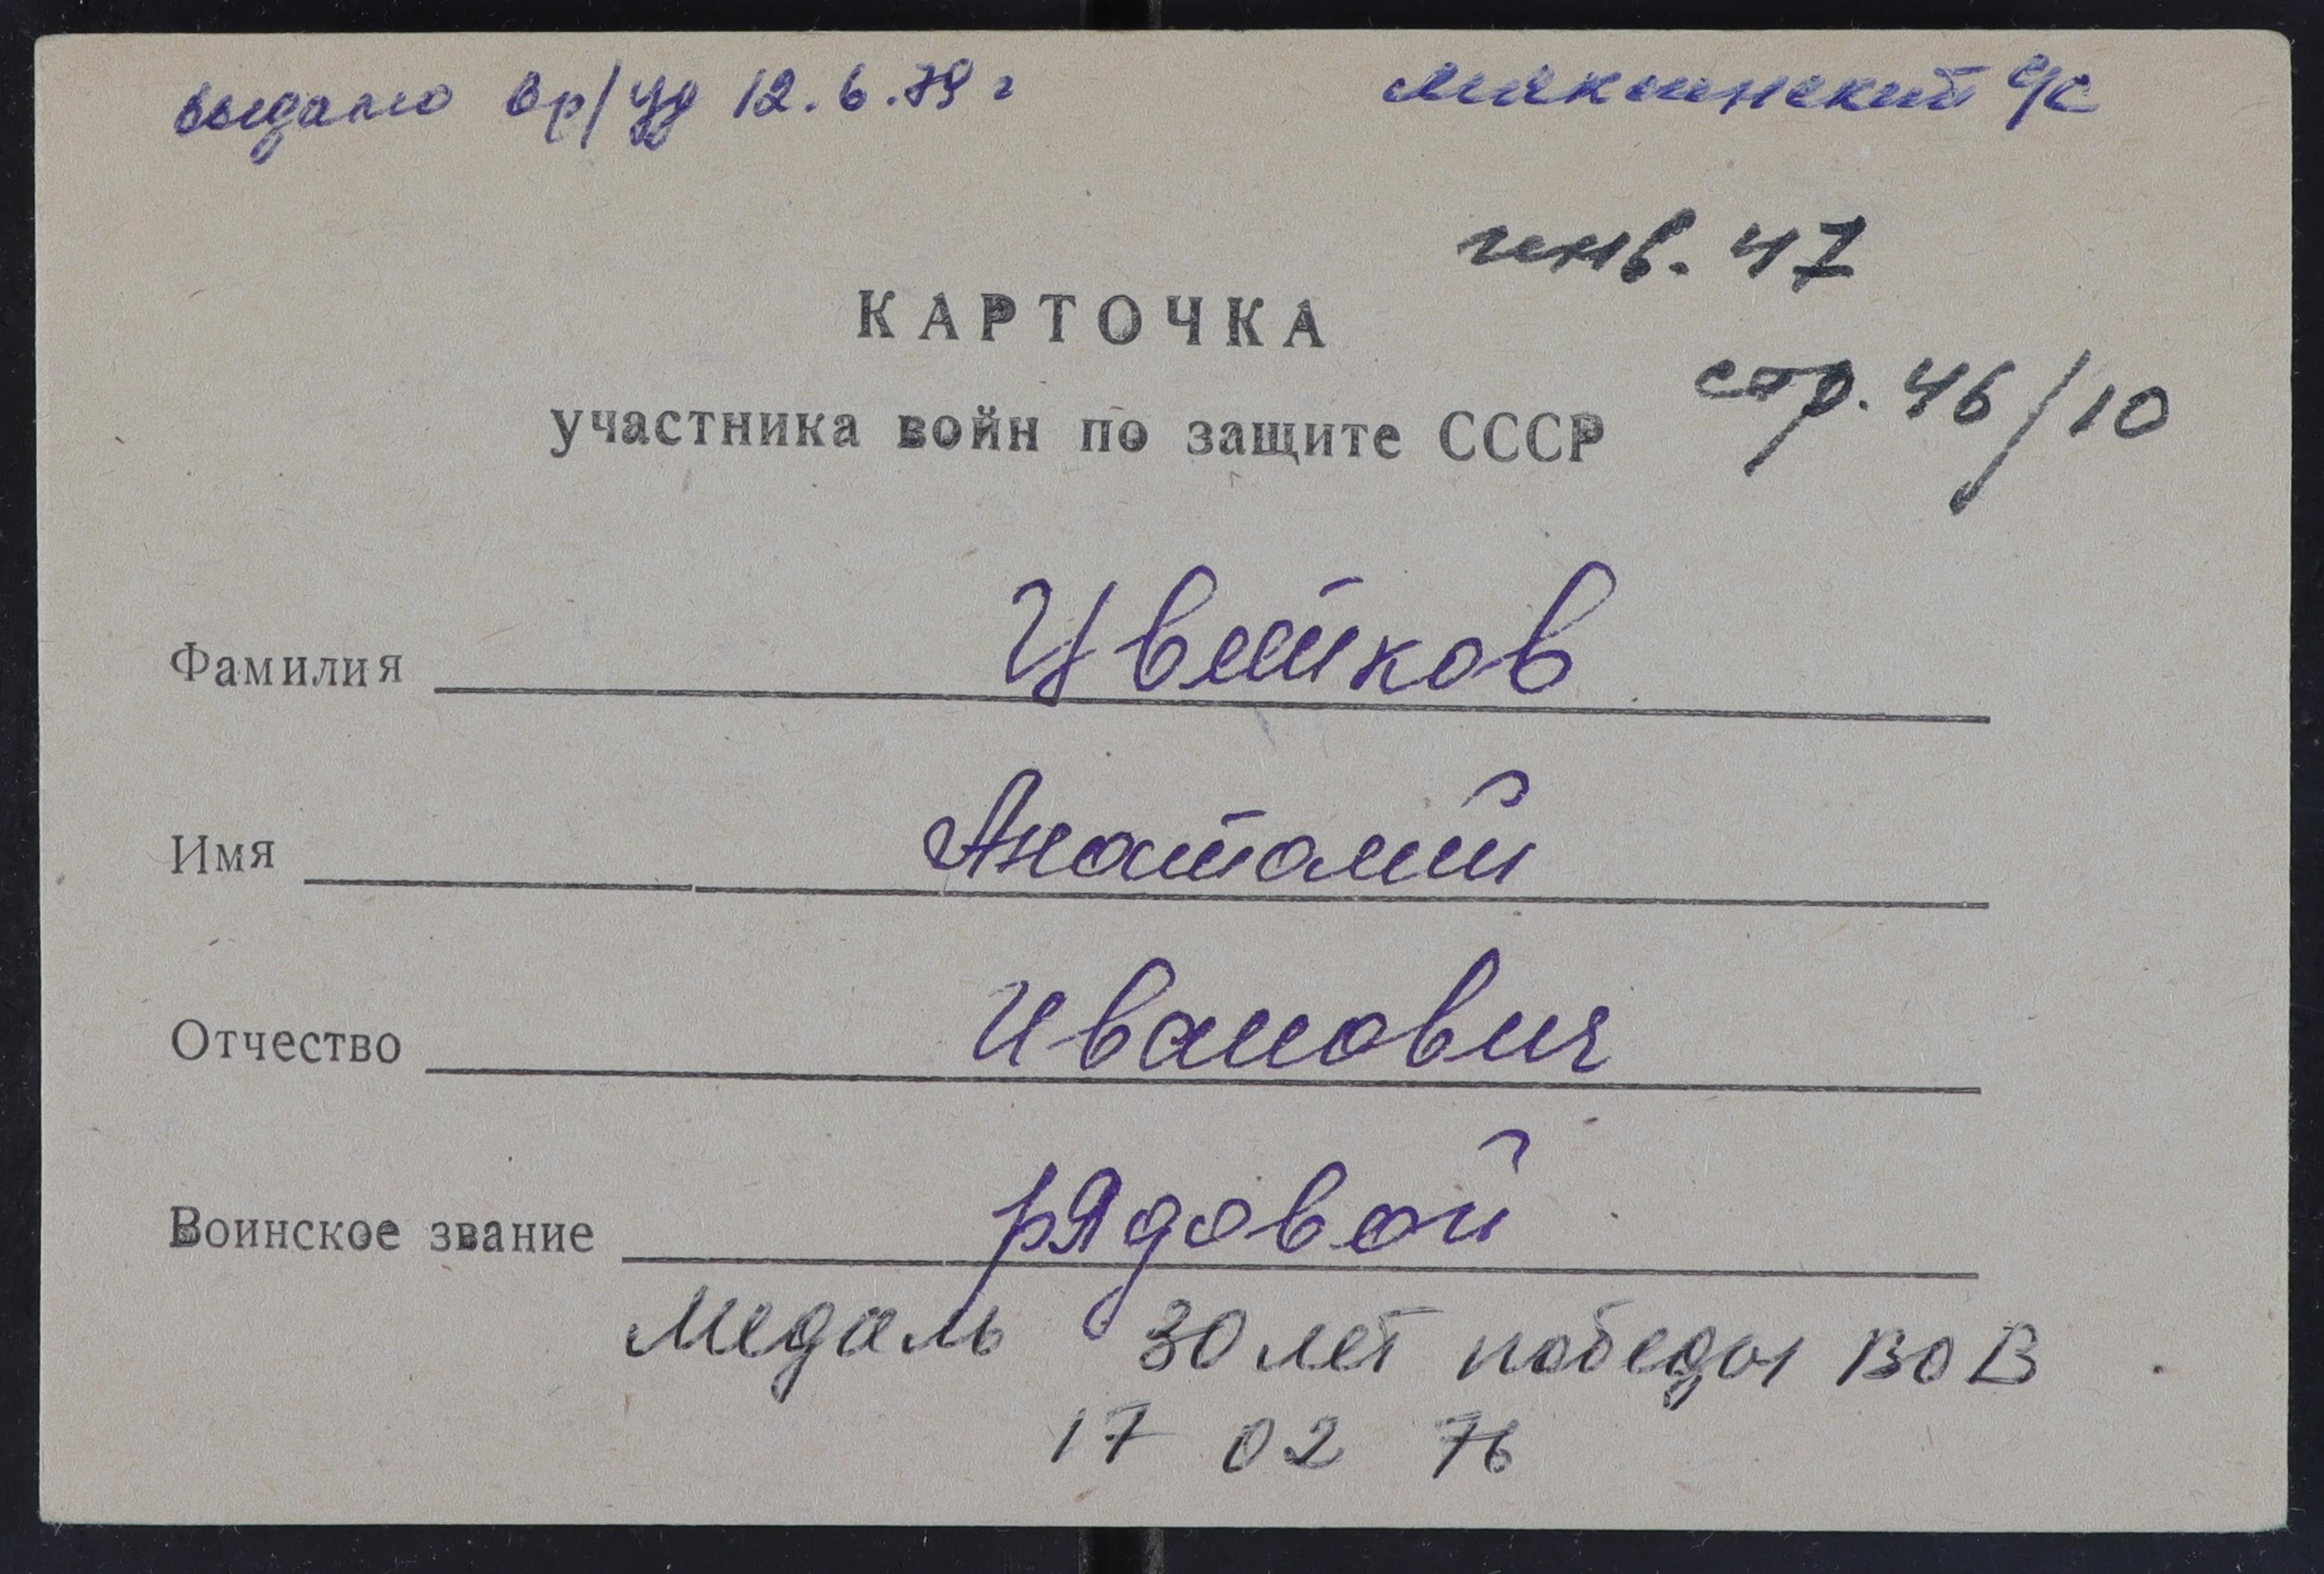 выдано вр/уд 12.6.79 г
Мякшинский с/с
инв. 47
КАРТОЧКА
стр. 46/10
участника войн по защите СССР
Фамилия Цветков
Имя Анатолий
Отчество Иванович
Воинское звание рядовой
Медаль 30 лет победы ВОВ
17 02 76